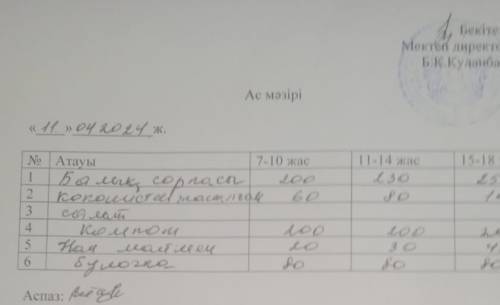 Бекіте
Мектеп директо
Б.К.Куланба
Ас мәзірі
«11» 04 2024 ж.
№ Атауы 7-10 жас 11-14 жас 15-18
1 Балық сорпасы 200 230 25
2 60 80 1
3 салат
4 Компот 200 200 2
5 Нан маймен 20 30 4
6 Булочка 80 80 80
Аспаз: